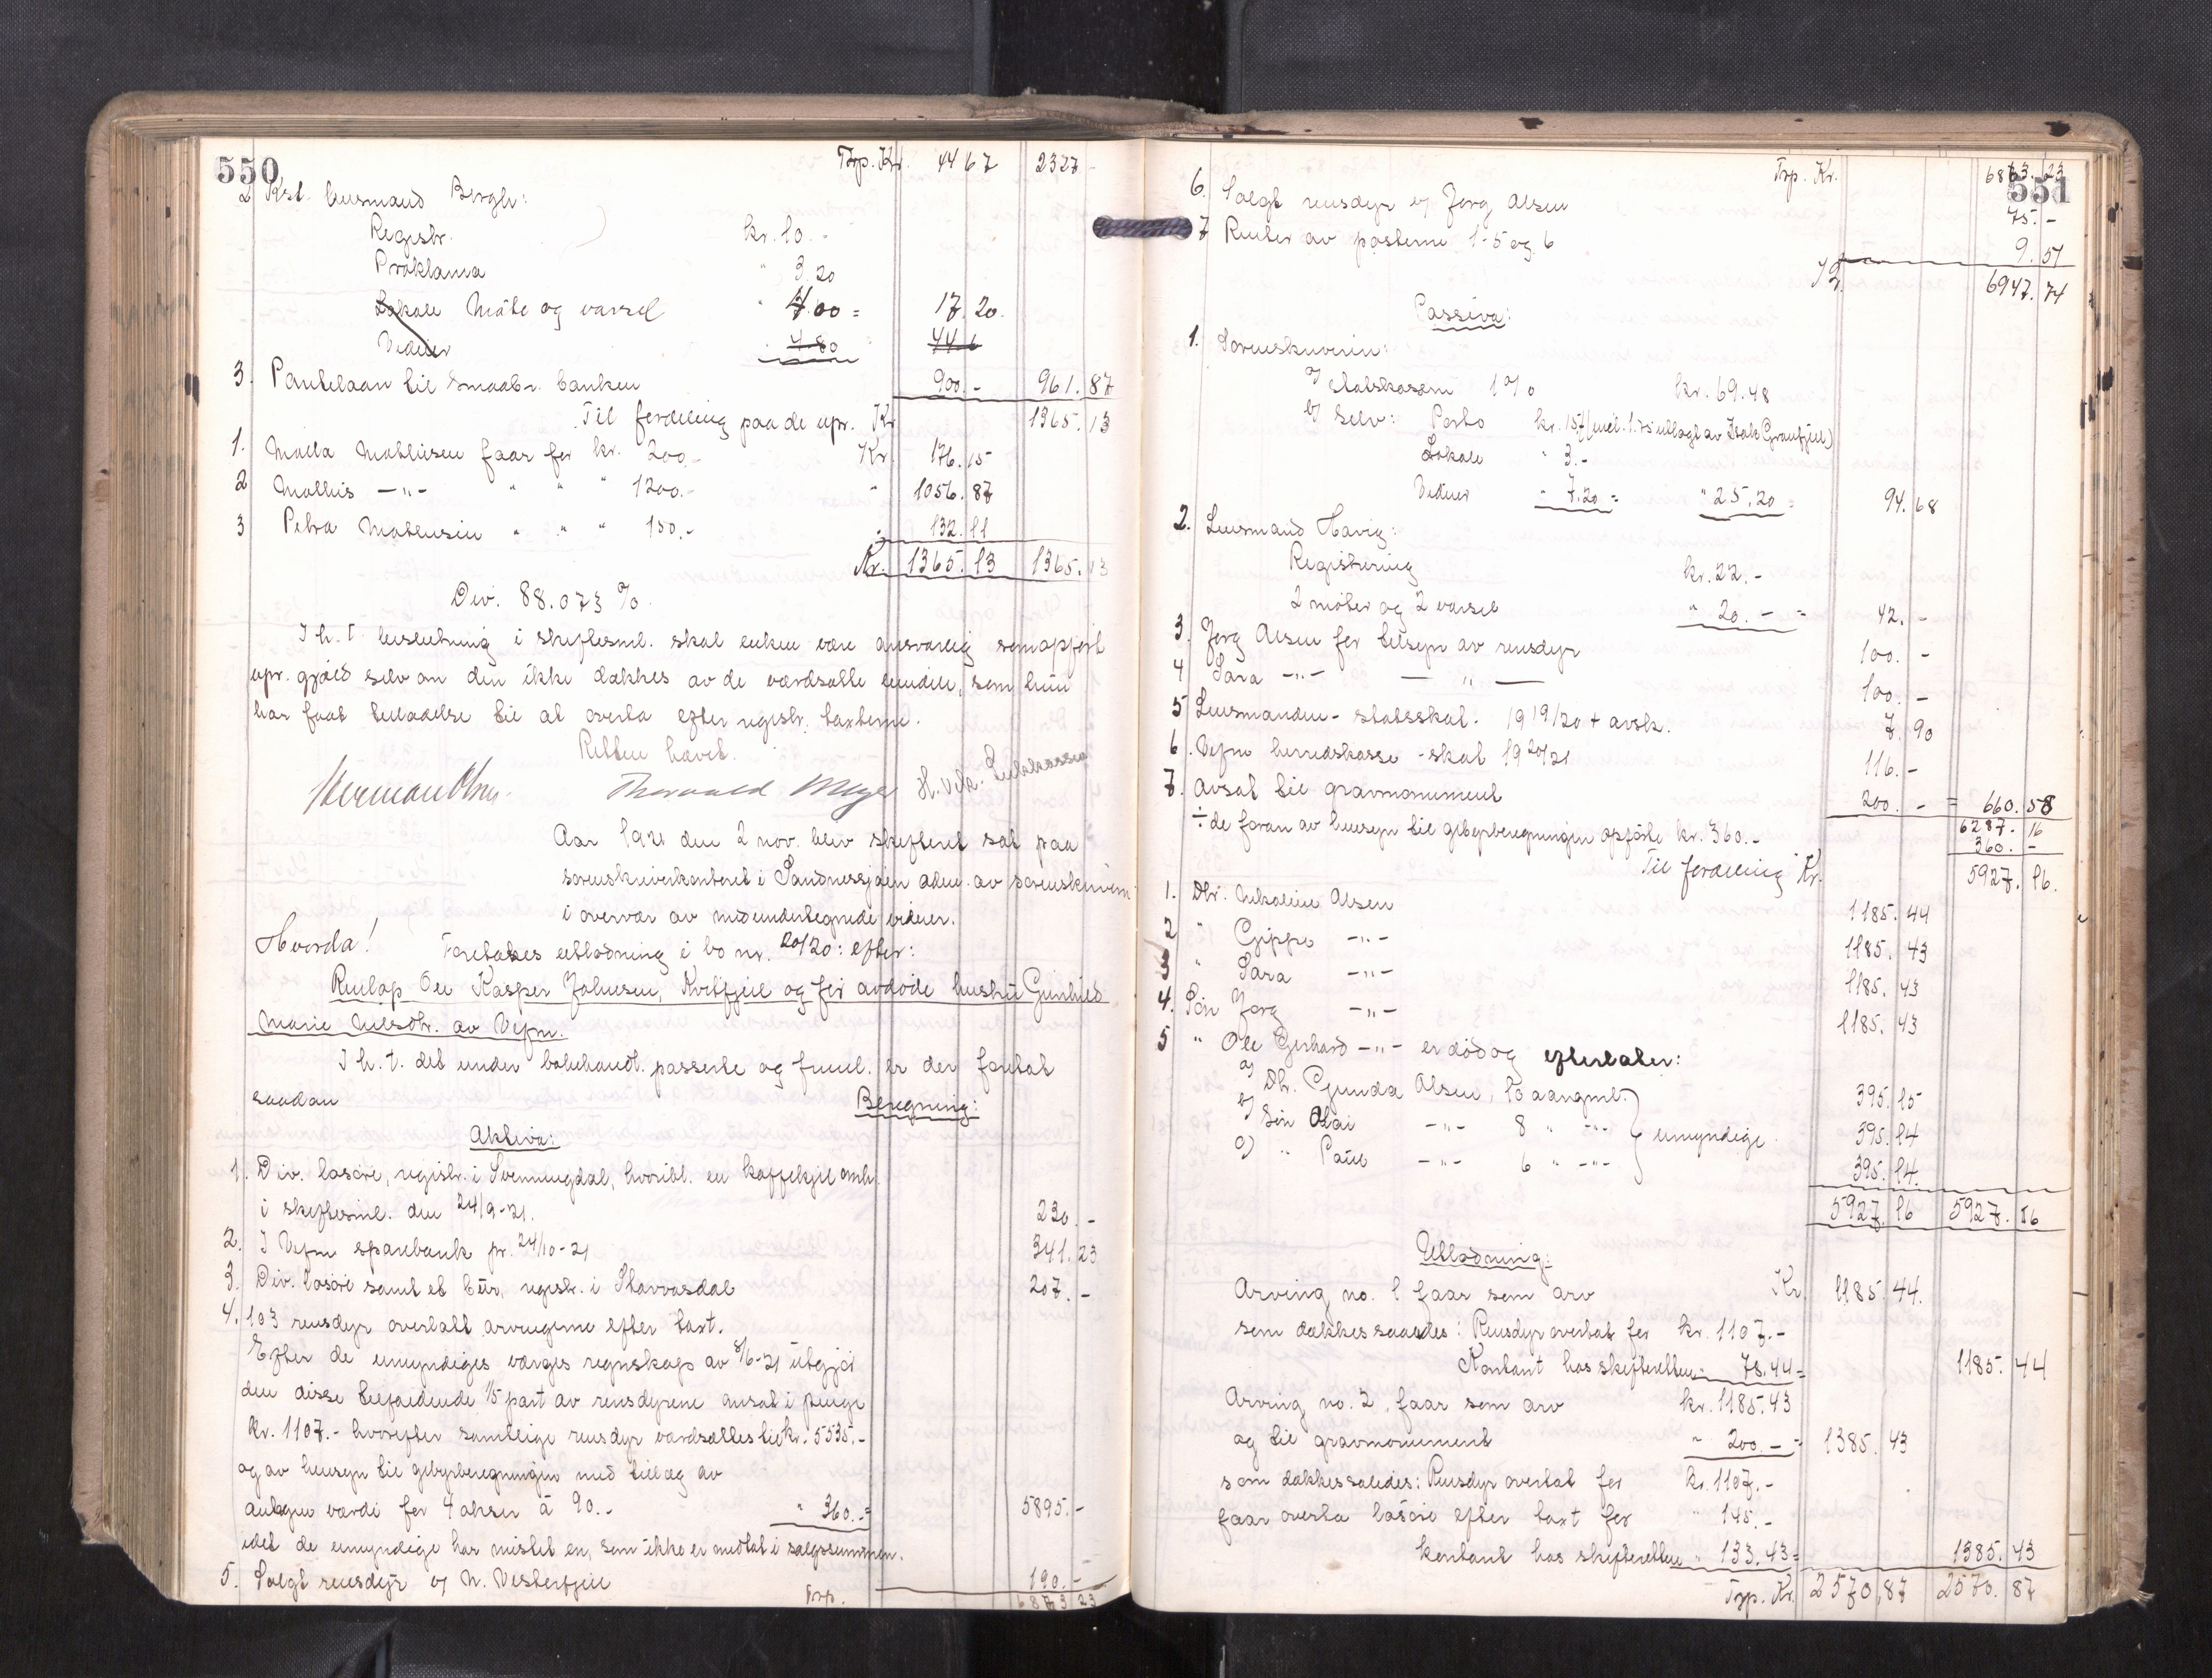 550
Trp. Kr. 44 67 2327 -
2 Kst. lensmand Bergh:
Registr. kr. 10. -
Proklama " 3.20
Lokale Møte og varsel " 4.00 = 17 20.
Vidner " 4.80 44 6
3. Pantelaan til Smaabr. banken 900.- 961.87
Til fordeling paa de upr. Kr 1365.13
1. Matta Mathiesen faar for kr. 200.- Kr. 176.15
2 Mathis -"- " " " 1200.- " 1056.87
3 Petra Mathiesen " " " 150.- " 132.11
Kr. 1365.13 1365.13
Div. 88.073 %.
I h. t. beslutning i skiftesml. skal enken være ansvarlig som opført
upr. gjæld selv om den ikke dækkes av de værdsatte eiendele, som hun
har faat tilladelse til at overta efter registr. taxterne.
Retten hævet.
Herman Olsen. Thorvald Meyer H. Vik.
Aar 1921 den 2 nov. blev skifteret sat paa
sorenskriverkontoret i Sandnessjøen adm. av sorenskriveren
i overvær av medundertegnede vidner.
Hvorda! Foretakes utlodning i bo nr. 20/20: efter:
Ruelap Ole Kasper Johnsen, Kvitfjeld og før avdøde hustru Gunhild
Marie Nilsdtr. av Vefsn.
I h. t. det under bobehandl. passerte og fremk. er der foretat
saadan Beregning:
Aktiva:
1. Div. løsøre, registr. i Svenningdal, hvoribl. en kaffekjel omh.
i skiftesml. den 24/9-21. 230.-
2. I Vefsn sparebank pr. 24/10-21 341.23
3. Div. løsøre samt et bur, registr. i Stavvasdal 207.-
4. 103 rensdyr overlatt arvingerne efter taxt.
Efter de umyndiges værges regnskap av 8/6-21 utgjør
den disse tilfaldende 1/5 part av rensdyrene ansat i penge
kr. 1107.- hvorefter samtlige rensdyr værdsættes til kr. 5535.-
og av hensyn til gebyrberegningen med tillæg av
antagen værdi for 4 okser à 90.- " 360.-= 5895.-
idet de umyndige har mistet en, som ikke er medtat i salgssummen.
5. Solgt rensdyr v/ N. Vesterfjeld 190.-
Trp. 6863 23
551
Trp. Kr. 6863.23
6. Solgt rensdyr v/ Jorg Olsen 75.-
7 Renter av posterne 1-5 og 6 9.51
Kr. 6947.74
Passiva:
1. Sorenskriveren:
a/ statskassen 1 % kr. 69.48
b/ Selv: Porto kr. 15.- (incl. 1.75 utlagt av Isak Granfjeld)
Lokale " 3.-
Vidner " 7.20 = " 25.20 = 94.68
2. Lensmand Havig:
Registrering kr. 22.-
2 møter og 2 varsel " 20.- = 42.-
3. Jorg Olsen for tilsyn av rensdyr 100.-
4 Sara -"- — " — 100.-
5 Lensmanden - statsskat. 1919/20 + avsk. 7.90
6. Vefsn herredskasse - skat 1920/21 116.-
7. Avsat til gravmonument 200.- = 660.58
6287.16
÷ de foran av hensyn til gebyrberegningen opførte kr. 360.- 360.-
Til fordeling Kr. 5927.16.
1. Dtr. Nikoline Olsen 1185.44
2 " Gippe -"- 1185.43
3 " Sara -"- 1185.43
4. Søn Jorg -"- 1185.43
5 " Ole Gerhard -"- er død og efterlater:
a) Dtr. Gunda Olsen, 10 aar gml. 395.15
b) Søn Olai -"- 8 " -"- umyndige 395.14
c) " Paul -"- 6 " -"- 395.14.
5927.16 5927.16
Utlodning:
Arving no. 1 faar som arv Kr 1185.44.
som dækkes saaledes: Rensdyr overtat for kr. 1107.-
Kontant hos skifteretten " 78.44 = 1185.44
Arving no. 2, faar som arv kr. 1185.43
og til gravmonument " 200.- = 1385.43
som dækkes saledes: Rensdyr overtat for kr. 1107.-
faar overta løsøre efter taxt for " 145.-
kontant hos skifteretten " 133.43 = 1385.43
Trp. Kr. 2570,87 2570.87